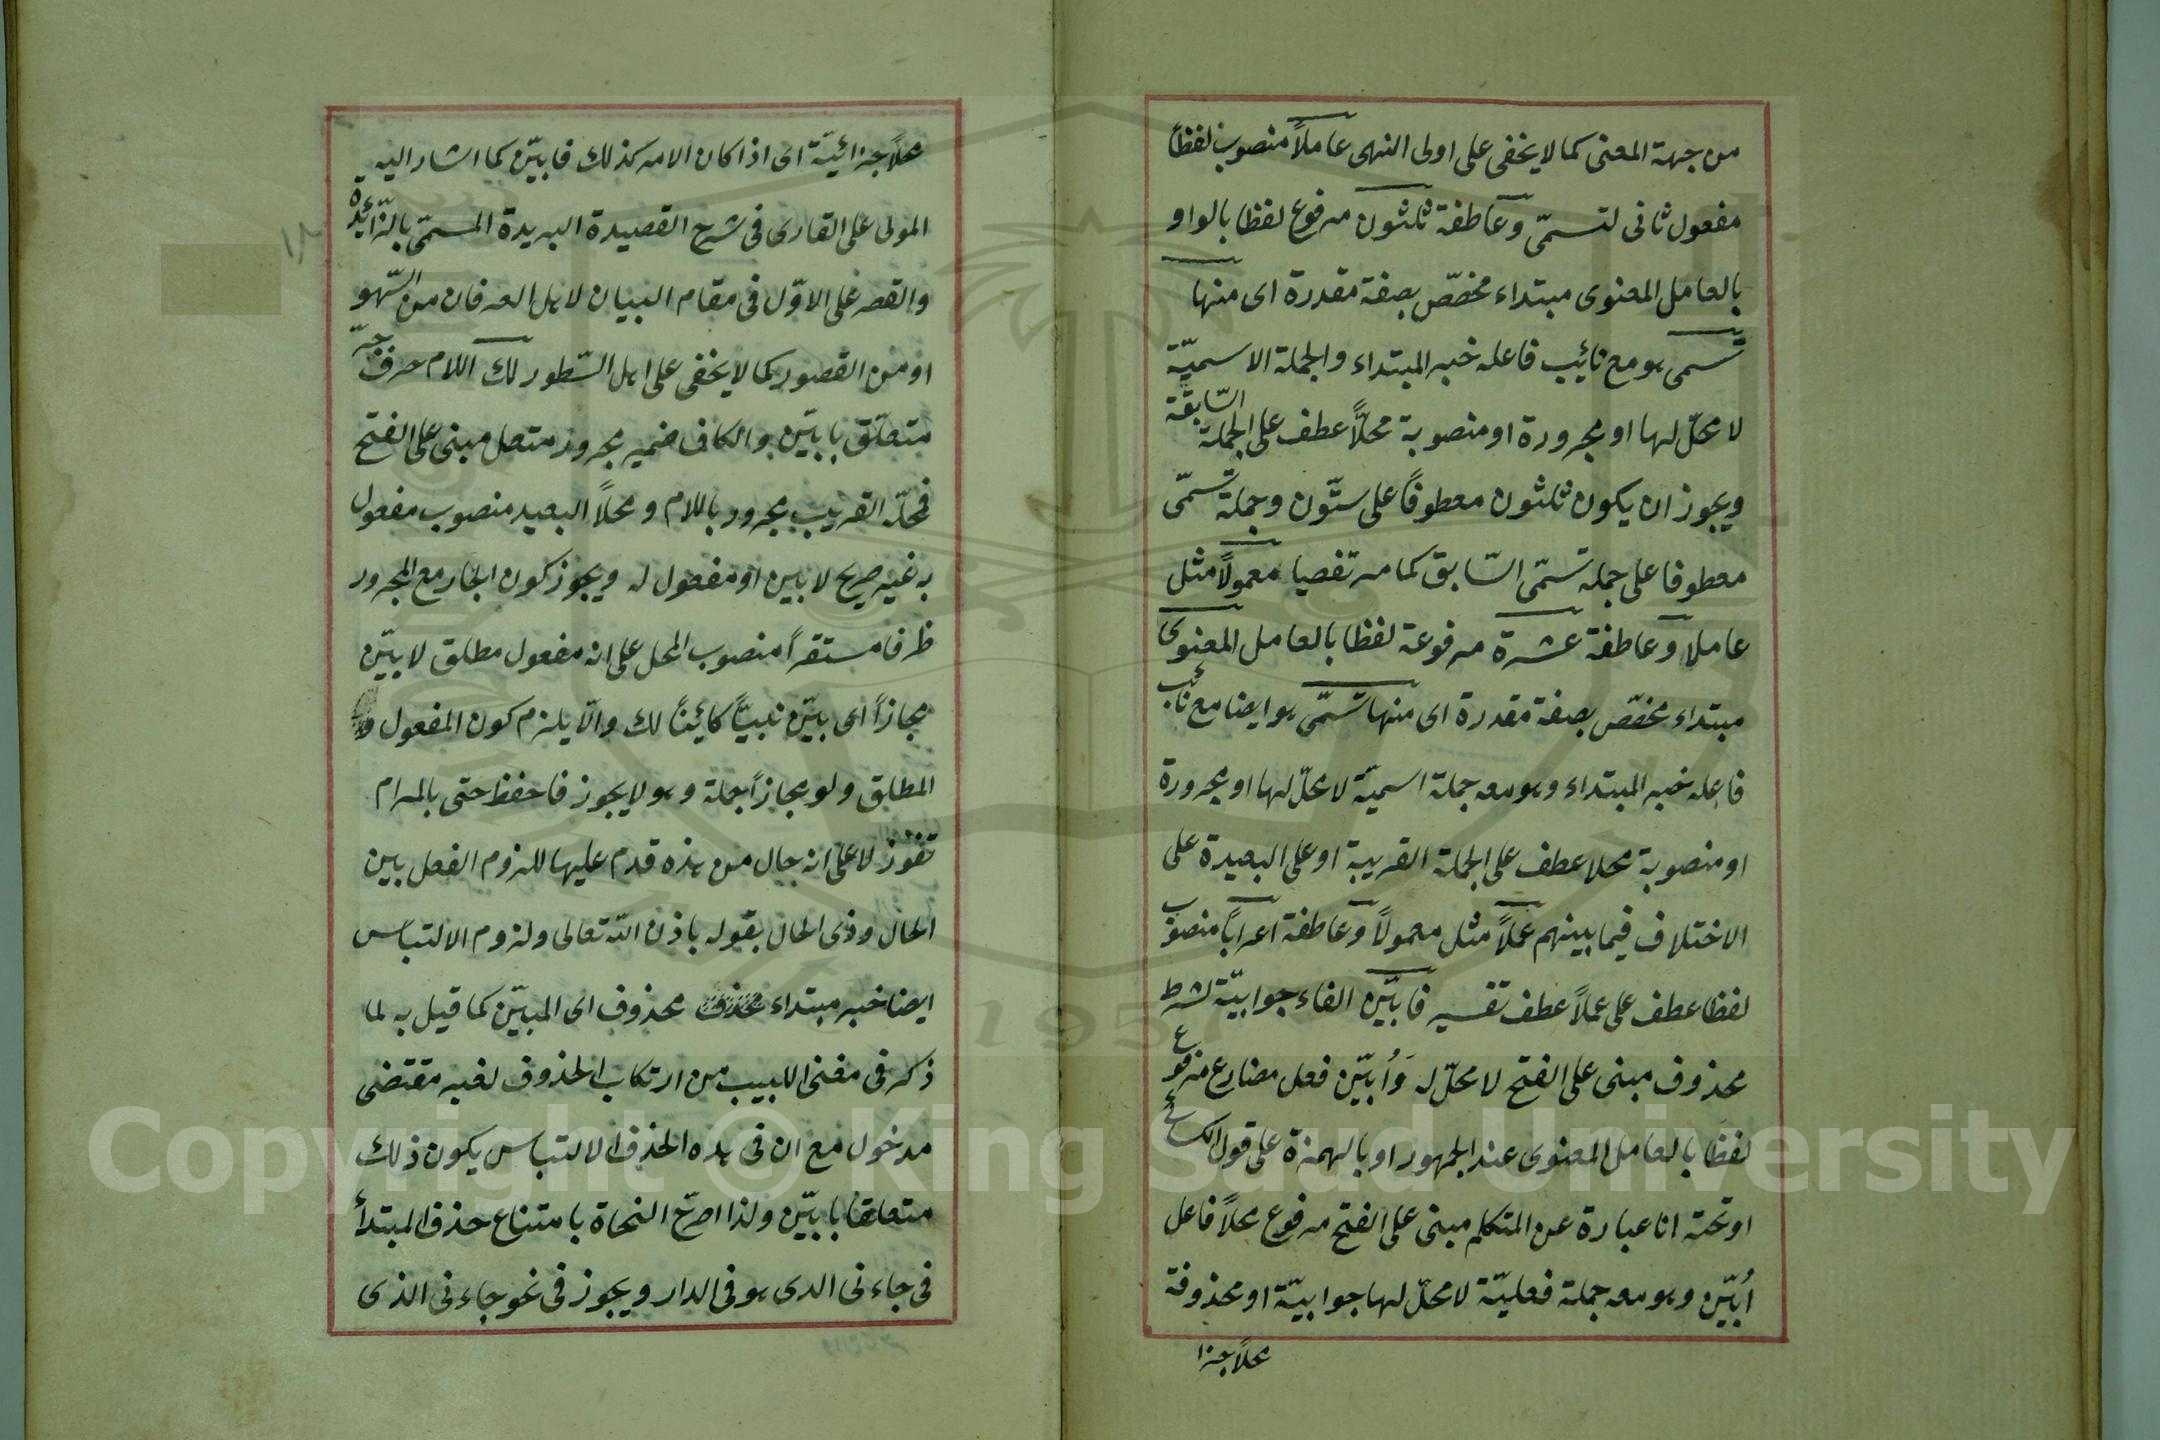 من جهة المعنى كما لا يخفى على اولى النهى عاملاً منصوب لفظاً
مفعول ثانى لتسمّى وَعاطفة ثلثون مرفوع لفظا بالواو
بالعامل المعنوى مبتداء مخصّص بصفة مقدرة اى منها
تسمى هو مع نائب فاعله خبر المبتداء والجملة الاسميّة
لا محلّ لها او مجرورة او منصوبة محلّاً عطف على الجملة السّابقة
ويجوز ان يكون ثلثون معطوفاً على ستّون وجملة تسمّى
معطوفا على جملة تسمّى السّابق كما مر تفصيا معمولاً مثل
عاملا وَعاطفة عشرة مرفوعة لفظا بالعامل المعنوى
مبتداء مخصّص بصفة مقدرة اى منها تسمّى هو ايضا مع نائب
فاعله خبر المبتداء وهو معه جملة اسميّة لا محلّ لها او مجرورة
او منصوبة محلا عطف على الجملة القريبة او على البعيدة على
الاختلاف فيما بينهم عملاً مثل معمولاً وَعاطفة اعراباً منصوب
لفظا عطف على عملاً عطف تفسير فابيّن الفاء جوابيّة لشرط
محذوف مبنى على الفتح لا محلّ له وَاُبيّن فعل مضارع مرفوع
لفظا بالعامل المعنوى عند الجمهور او بالهمزة على قول الكسائى
او تحته انا عبارة عن المتكلم مبنى على الفتح مرفوع محلاً فاعل
اُبيّن وهو معه جملة فعليّة لا محلّ لها جوابيّة او محذوفة
محلاً جزا
محلاً جزائيّة اى اذا كان الامر كذلك فابيّن كما اشار اليه
المولى على القارى فى شرح القصيدة البريدة المسمّى بالزّائدة
والقصر على الاوّل فى مقام البيان لاهل العرفان من السّهو
او من القصور كما لا يخفى على اهل السّطور لك اللام حرف جرّ
متعلّق بابيّن والكاف ضمير مجرور متصل مبنى على الفتح
فمحلّه القريب مجرور باللام ومحلاً البعيد منصوب مفعول
به غير صريح لابين او مفعول له ويجوز كون الجار مع المجرور
ظرفا مستقراً منصوب المحل على انه مفعول مطلق لابيّن
مجازاً اى بيّن تبييناً كائيناً لك والّا يلزم كون المفعول
المطلق ولو مجازاً جملة وهو لا يجوز فاحفظ حتى بالمرام
تفوز لا على انه حال من هذه قدم عليها للزوم الفصل بين
الحال وذى الحال بقوله باذن اللّه تعالى ولزوم الالتباس
ايضا خبر مبتداء محذوف محذوف اى المبيّن كما قيل به لما
ذكر فى مغنى اللبيب من ارتكاب الحذوف لغير مقتضى
مدخول مع ان فى هذه الحذف الالتباس يكون ذلك
متعلقا بابيّن ولذا صرّح النحاة بامتناع حذف المبتدأ
فى جاءنى الذى هو فى الدار ويجوز فى نحو جاءنى الذى
Copyright © King Saud University
1957